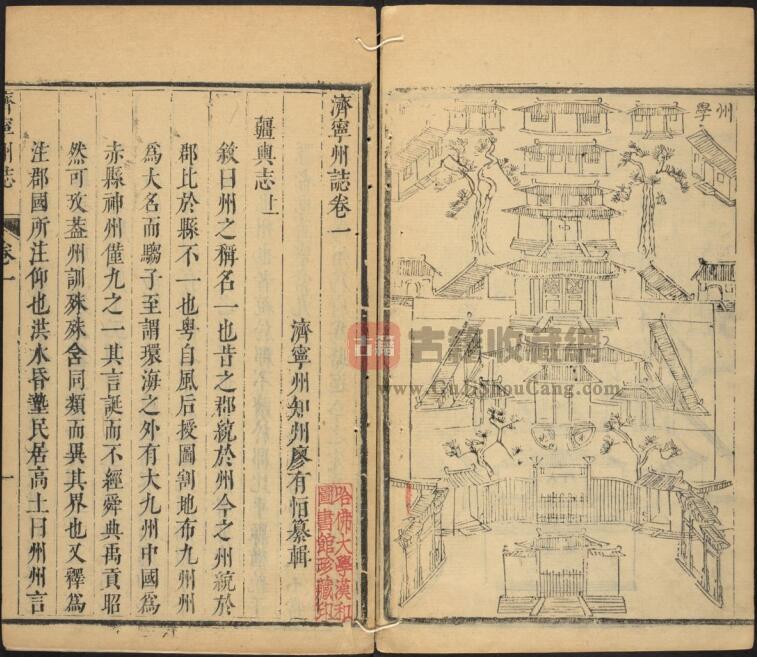 州學
濟寧州誌卷一
濟寧州知州廖有恒纂輯
疆輿志上
敘曰州之稱名一也昔之郡統於州今之州統於
郡比於縣不一也粤自風后授圖割地布九州州
為大名而騶子至謂環海之外有大九州中國為
赤縣神州僅九之一其言誕而不經舜典禹貢昭
然可攷葢州訓殊殊舍同類而異其界也又釋為
注郡國所注仰也洪水昏墊民居高土曰州州言
濟寧州志
卷一
一
哈佛大學漢和
圖書館珍藏印
古籍
古籍收藏網
www.GuJiShouCang.com